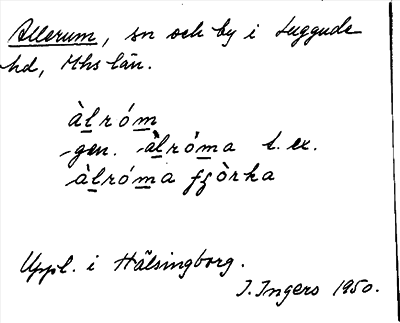 Allerum, sn och by i Luggude
hd, Mhs län.
àl̲róm̲
-gen. àl̲róm̲a t. ex.
àl̲róm̲a fjòrka
Uppl. i Hälsingborg.
I. Ingers 1950.